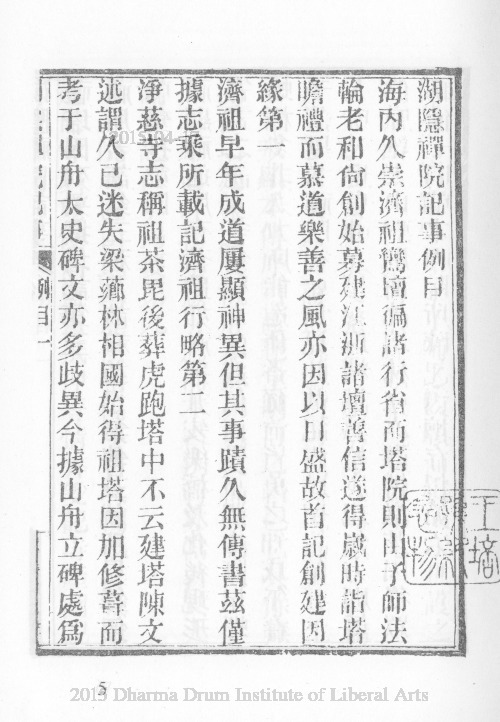 湖隱禪院記事例目
海內久崇濟祖鸞壇徧諸行省而塔院則由子師法
輪老和尙創始募建江浙諸壇善信遂得歲時詣塔
瞻禮而慕道樂善之風亦因以日盛故首記創建因
緣第一
濟祖早年成道屢顯神異但其事蹟久無傳書茲僅
據志乘所載記濟祖行略第二
淨慈寺志稱祖荼毘後葬虎跑塔中不云建塔陳文
述謂久已迷失梁薌林相國始得祖塔因加修葺而
考于山舟太史碑文亦多歧異今據山舟立碑處爲
例目一
5
2013 Dharma Drum Institute of Liberal Arts